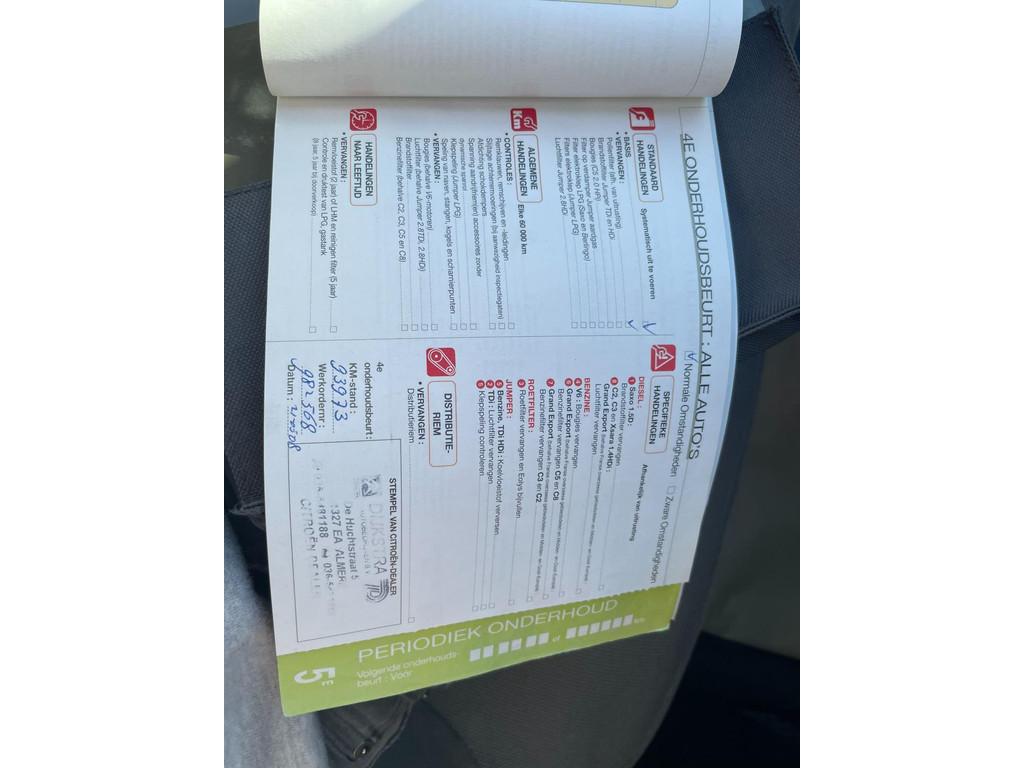 4E ONDERHOUDSBEURT : ALLE AUTO'S
Normale Omstandigheden
Zware Omstandigheden
STANDAARD
HANDELINGEN
Systematisch uit te voeren
• BASIS
• VERVANGEN :
Pollenfilter (afh. van uitrusting)
Brandstoffilter Jumper TDi en HDi
Bougies (C5 2.0 HPi)
Filter op verdamper Jumper aardgas
Filter elektroklep LPG (Saxo en Berlingo)
Filters elektroklep (Jumper LPG)
Luchtfilter Jumper 2.8HDi
Km
ALGEMENE
HANDELINGEN
Elke 60 000 km
• CONTROLES :
Remklauwen, remschijven en -leidingen
Slijtage achterremvoeringen (bij aanwezigheid inspectiegaten)
Afdichting schokdempers
Spanning aandrijfriem(en) accessoires zonder
dynamische spanrol
Klepspeling (Jumper LPG)
Speling van naven, stangen, kogels en scharnierpunten
• VERVANGEN :
Bougies (behalve V6-motoren)
Luchtfilter (behalve Jumper 2.8TDi, 2.8HDi)
Brandstoffilter
Benzinefilter (behalve C2, C3, C5 en C8)
HANDELINGEN
NAAR LEEFTIJD
• VERVANGEN :
Remvloeistof (2 jaar) of LHM en reinigen filter (5 jaar)
Controle en druktest van LPG, gastank
(8 jaar, 5 jaar bij doorverkoop)
SPECIFIEKE
HANDELINGEN
Afhankelijk van uitrusting
DIESEL :
Saxo 1.5D :
Brandstoffilter vervangen
C2, C3 en Xsara 1.4HDi :
Grand Export
Luchtfilter vervangen
BENZINE :
V6 : Bougies vervangen
Grand Export
Benzinefilter vervangen C5 en C8
Grand Export
Benzinefilter vervangen C3 en C2
ROETFILTER :
Roetfilter vervangen en Eolys bijvullen
JUMPER :
Benzine, TDi HDi : Koelvloeistof verversen
TDi : Luchtfilter vervangen
Klepspeling controleren
DISTRIBUTIE-
RIEM
• VERVANGEN :
Distributieriem
4e
onderhoudsbeurt :
KM-stand :
93973
Werkordernr.:
982568
Datum :
STEMPEL VAN CITROËN-DEALER
DIJKSTRA
De Huchtstraat 5
1327 EA ALMERE
CITROËN DEALER
PERIODIEK ONDERHOUD
Volgende onderhouds-
beurt : Vóór
of
km
5E